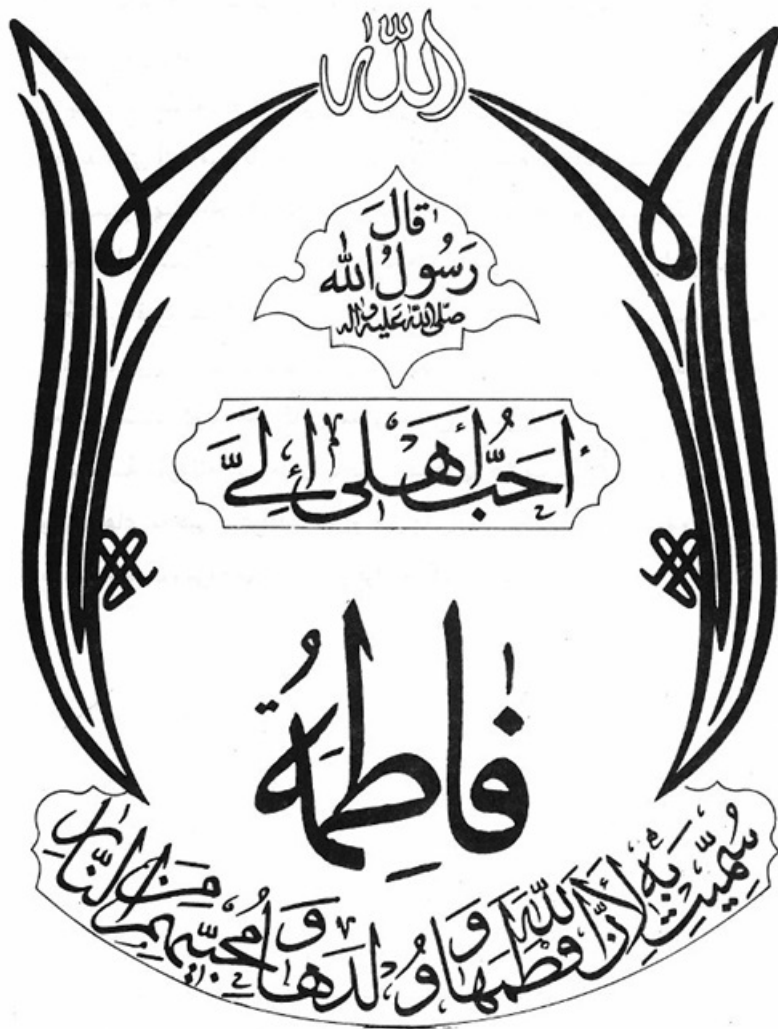 الله
قَالَ
رَسُولُ الله
صلّى الله عَليه وآله
أَحَبُّ أَهْلِى إِلَىَّ
فَاطِمَةُ
سُمِّيَتْ بِهِ لِأَنَّ اللهَ فَطَمَهَا وَ وُلدَهَا وَ مُحِبِّيهِم مِنَ النَّارِ